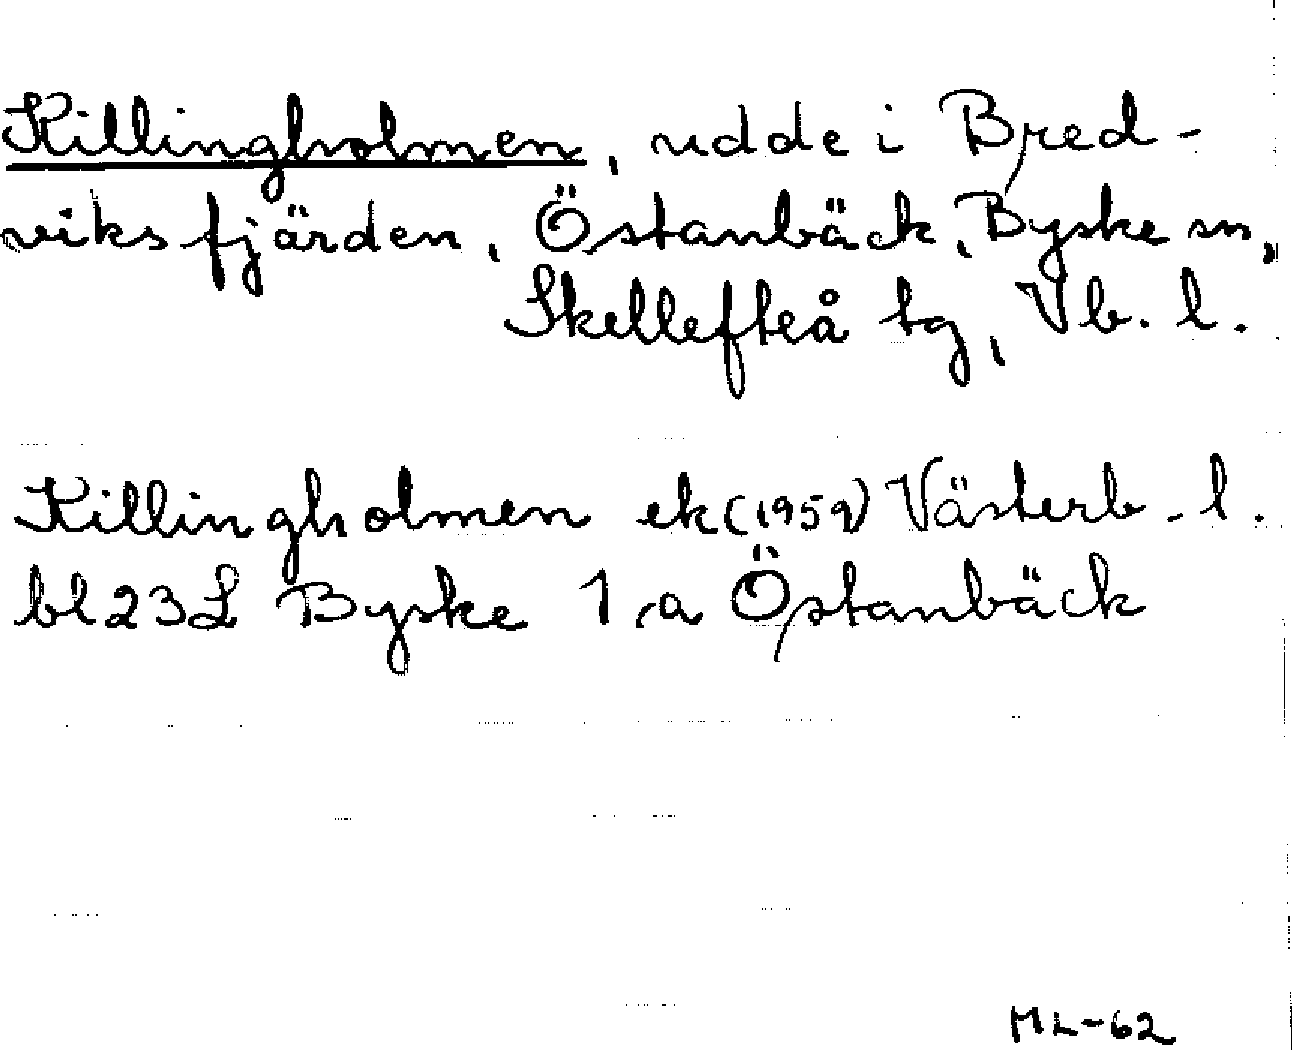 Killingholmen, udde i Bred-
viksfjärden, Östanbäck, Byske sn,
Skellefteå tg, Vb. l.
Killingholmen ek (1959) Västerb. l.
bl 23L Byske 1, a Östanbäck
ML-62